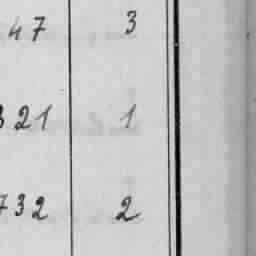 47 3
321 1
732 2